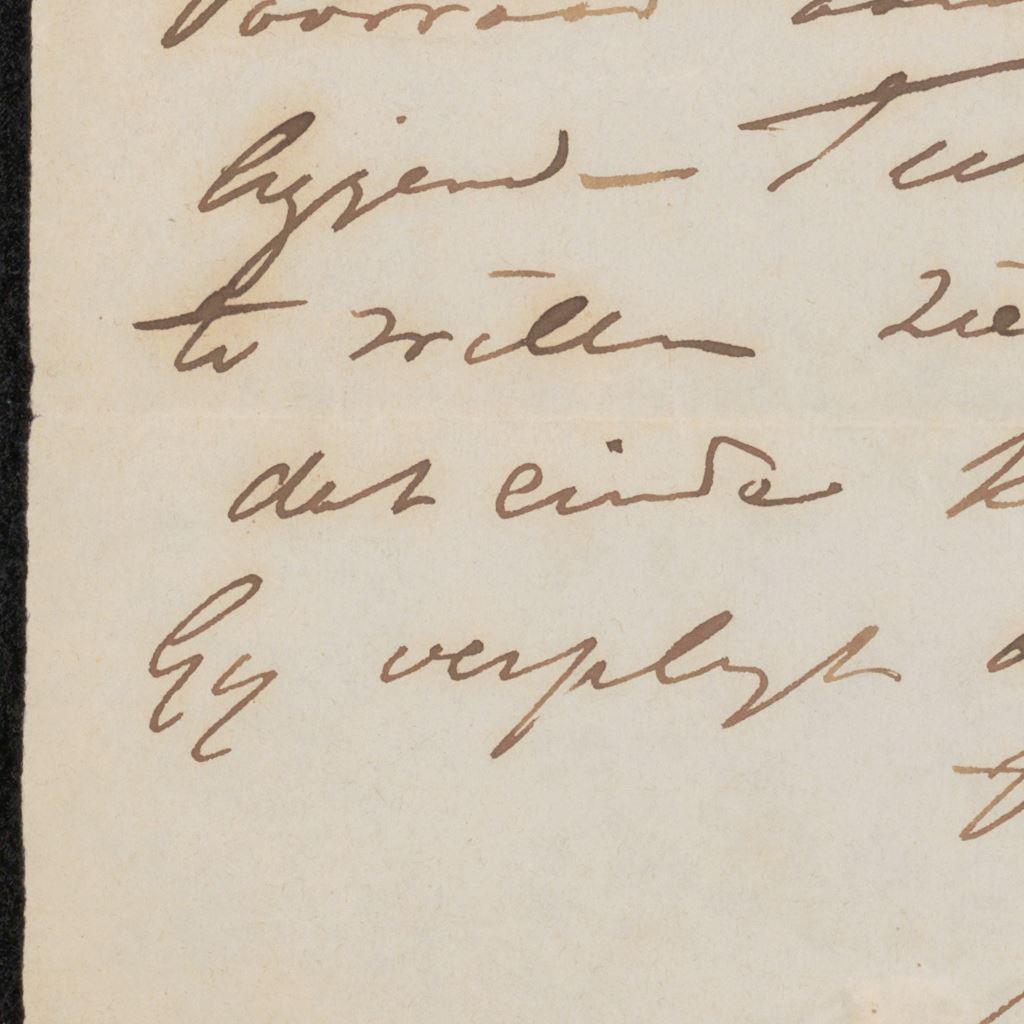 voorraad
liggend - Te
te willen zie
dat einde
Gy verpligt